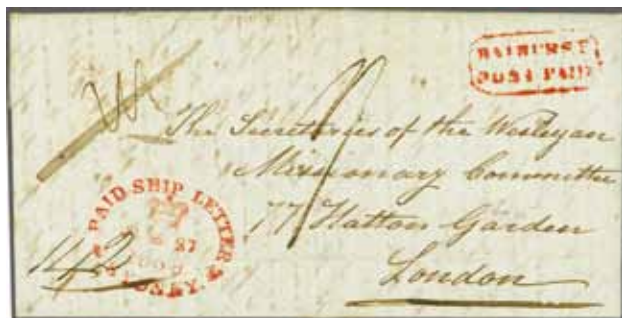 BATHURST
POST PAID
The Secretaries of the Wesleyan
Missionary Committee
77 Hatton Garden
London
PAID SHIP LETTER
SYDNEY